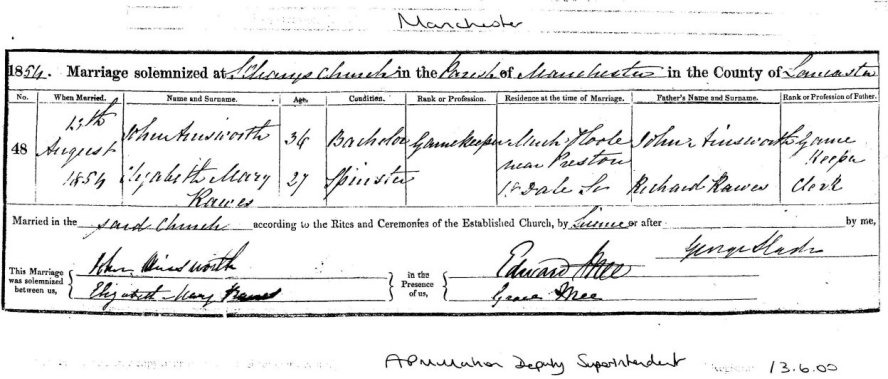 Manchester
1854. Marriage solemnized at St Georges Church in the Parish of Manchester in the County of Lancaster
No. When Married. Name and Surname. Age. Condition. Rank or Profession. Residence at the time of Marriage. Father's Name and Surname. Rank or Profession of Father.
48 August 1854 John Ainsworth 36 Bachelor Gamekeeper Much Hoole near Preston John Ainsworth Game Keeper
Elizabeth Mary Rawes 27 Spinster 18 Dale St Richard Rawes Clerk
Married in the said Church according to the Rites and Ceremonies of the Established Church, by Licence or after by me,
George
This Marriage was solemnized between us, John Ainsworth in the Presence of us, Edward Mee
Elizabeth Mary Rawes Grace Mee
Deputy Superintendent Registrar 13.6.00